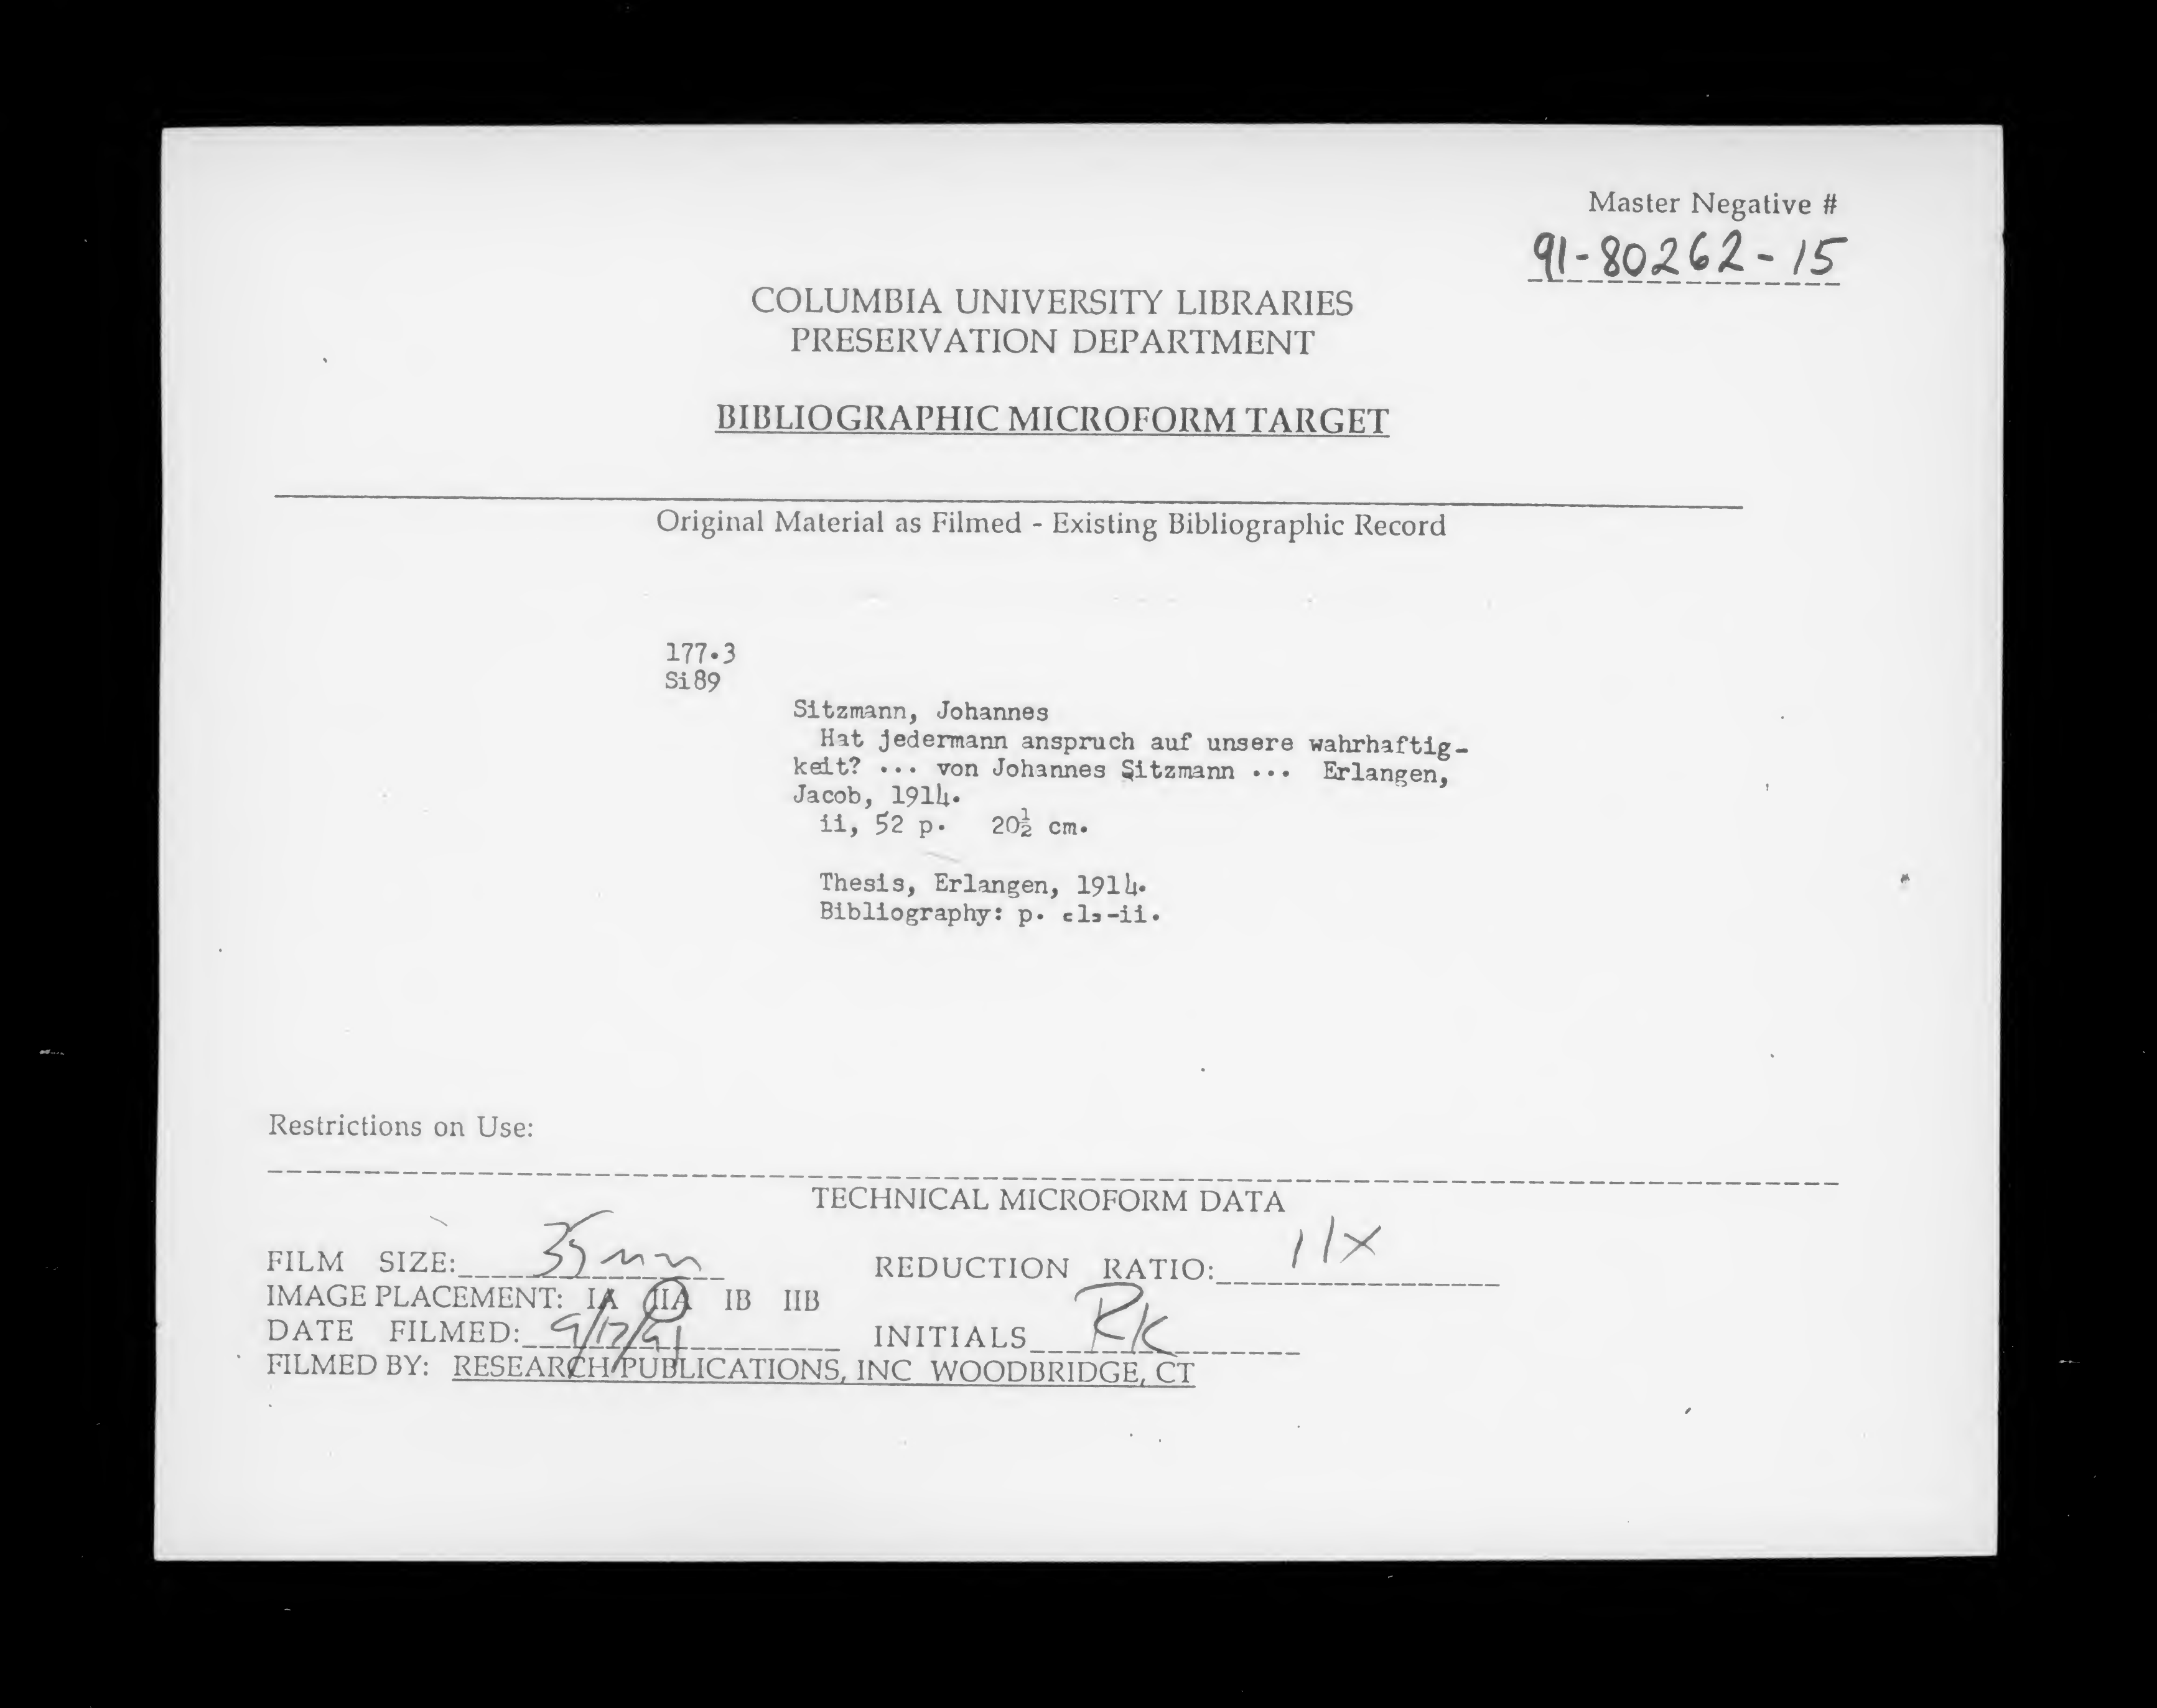 Master Negative #
91-80262-15
COLUMBIA UNIVERSITY LIBRARIES
PRESERVATION DEPARTMENT
BIBLIOGRAPHIC MICROFORM TARGET
Original Material as Filmed - Existing Bibliographic Record
177.3
Si89
Sitzmann, Johannes
Hat jedermann anspruch auf unsere wahrhaftig-
keit? ... von Johannes Sitzmann ... Erlangen,
Jacob, 1914.
ii, 52 p. 20½ cm.
Thesis, Erlangen, 1914.
Bibliography: p. [1]-ii.
Restrictions on Use:
TECHNICAL MICROFORM DATA
FILM SIZE: 35mm REDUCTION RATIO: 11X
IMAGE PLACEMENT: IA IIA IB IIB
DATE FILMED: 9/17/91 INITIALS RK
FILMED BY: RESEARCH PUBLICATIONS, INC WOODBRIDGE, CT